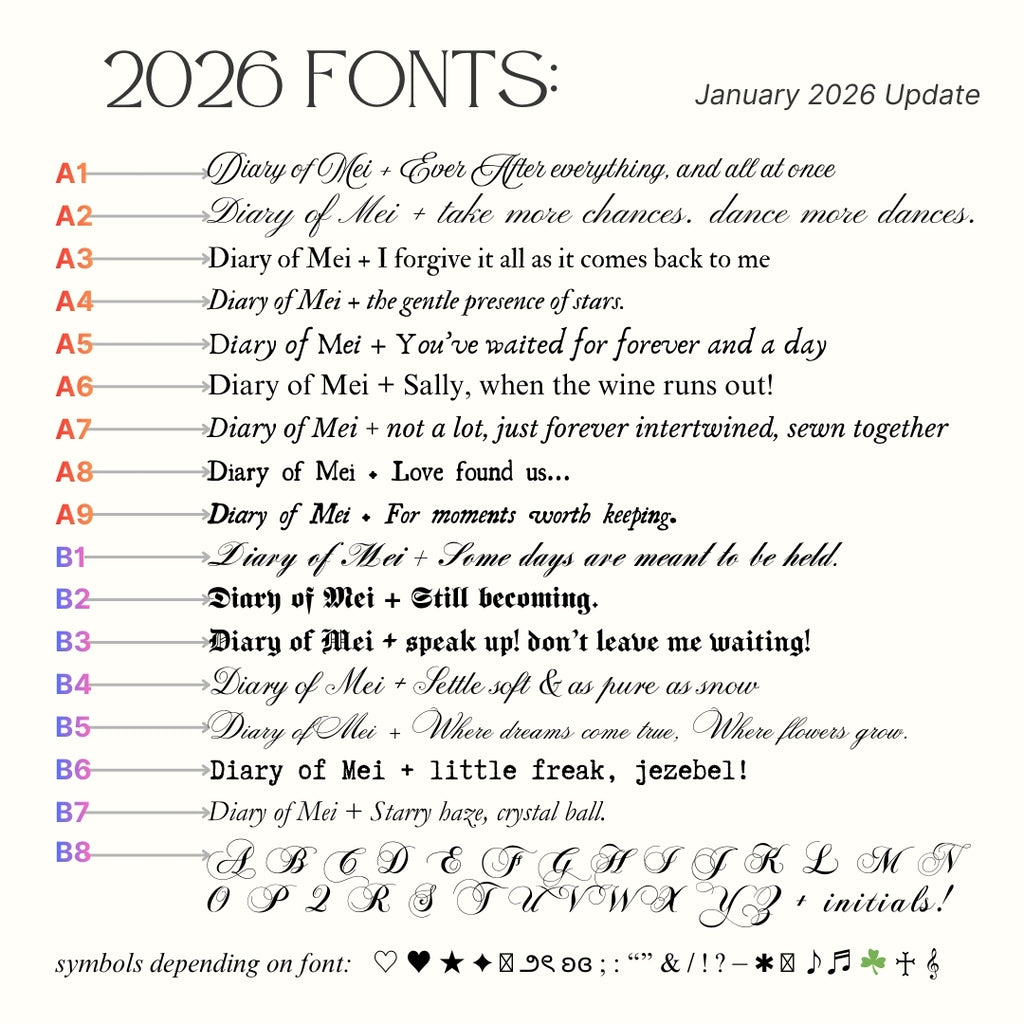 2026 FONTS:
January 2026 Update
A1 Diary of Mei + Ever After everything, and all at once
A2 Diary of Mei + take more chances. dance more dances.
A3 Diary of Mei + I forgive it all as it comes back to me
A4 Diary of Mei + the gentle presence of stars.
A5 Diary of Mei + You've waited for forever and a day
A6 Diary of Mei + Sally, when the wine runs out!
A7 Diary of Mei + not a lot, just forever intertwined, sewn together
A8 Diary of Mei + Love found us...
A9 Diary of Mei + For moments worth keeping.
B1 Diary of Mei + Some days are meant to be held.
B2 Diary of Mei + Still becoming.
B3 Diary of Mei + speak up! don't leave me waiting!
B4 Diary of Mei + Settle soft & as pure as snow
B5 Diary of Mei + Where dreams come true, Where flowers grow.
B6 Diary of Mei + little freak, jezebel!
B7 Diary of Mei + Starry haze, crystal ball.
B8 A B C D E F G H I J K L M N
O P Q R S T U V W X Y Z + initials!
symbols depending on font: ♡ ♥ ★ ✦ ౨ৎ ʚɞ ; : “” & / ! ? – ✱ ♪ ♬ ☘ ♱ 𝄞